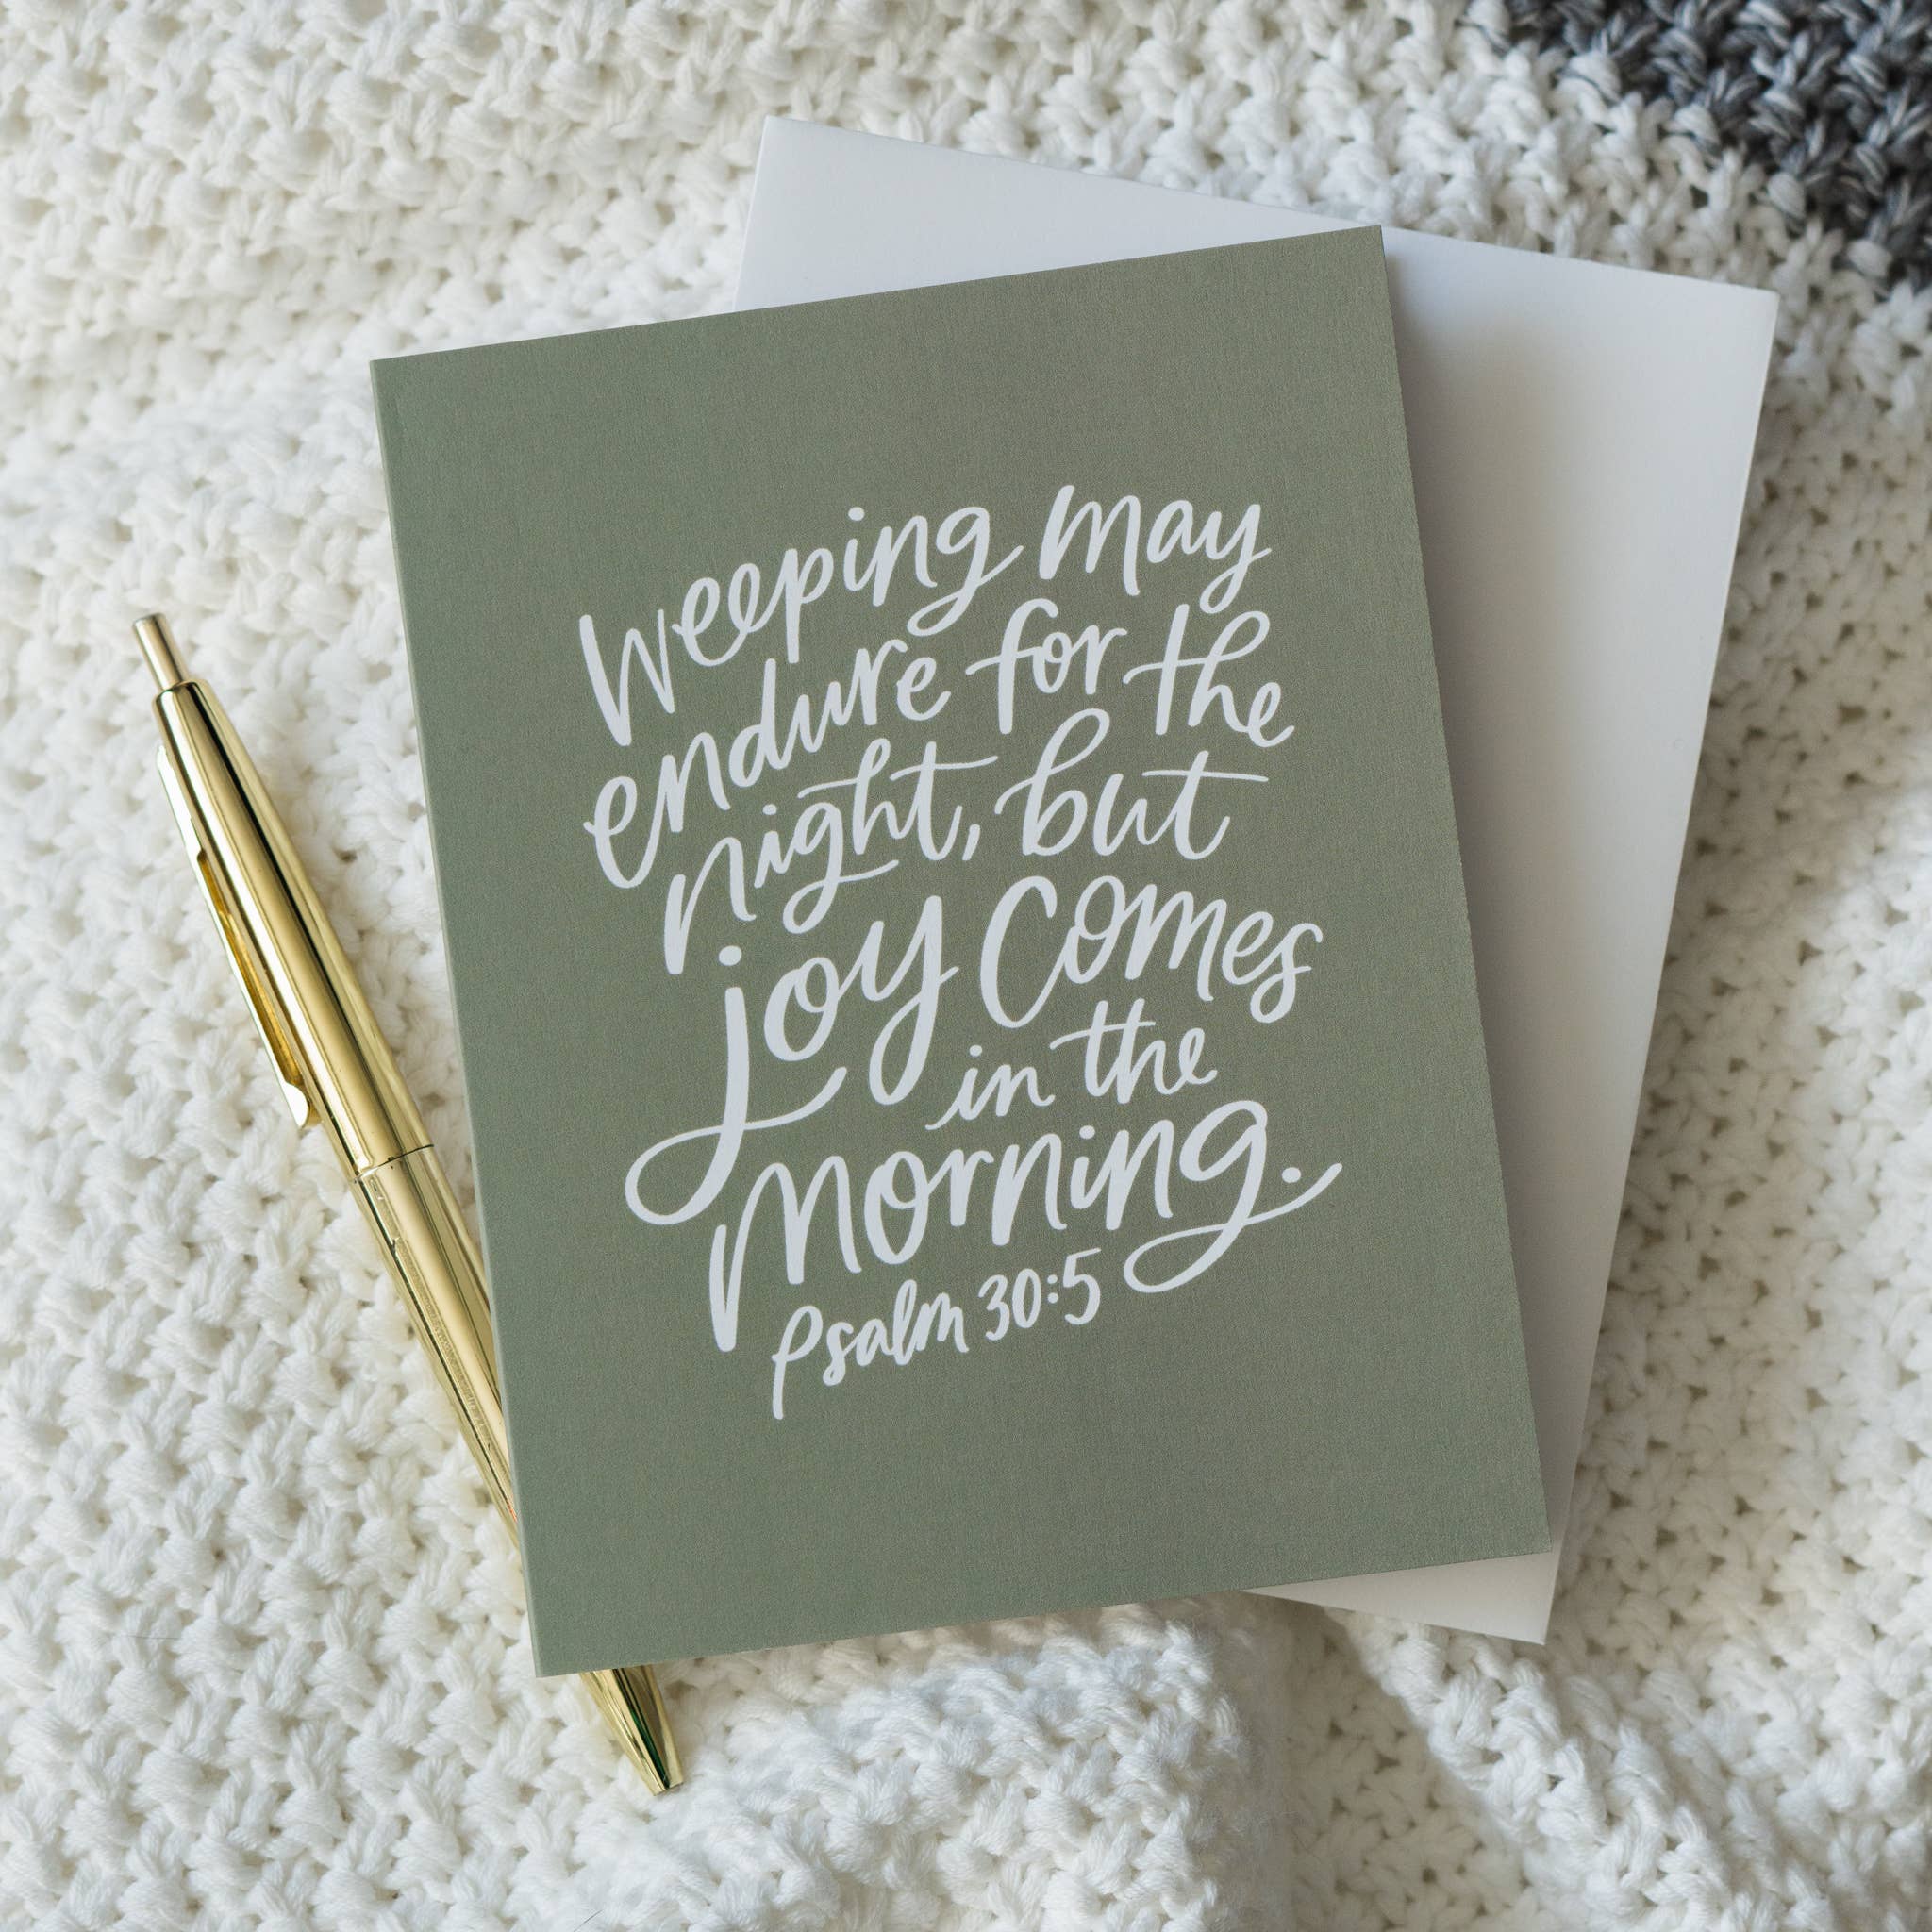 Weeping may
endure for the
night, but
joy comes
in the
morning.
Psalm 30:5